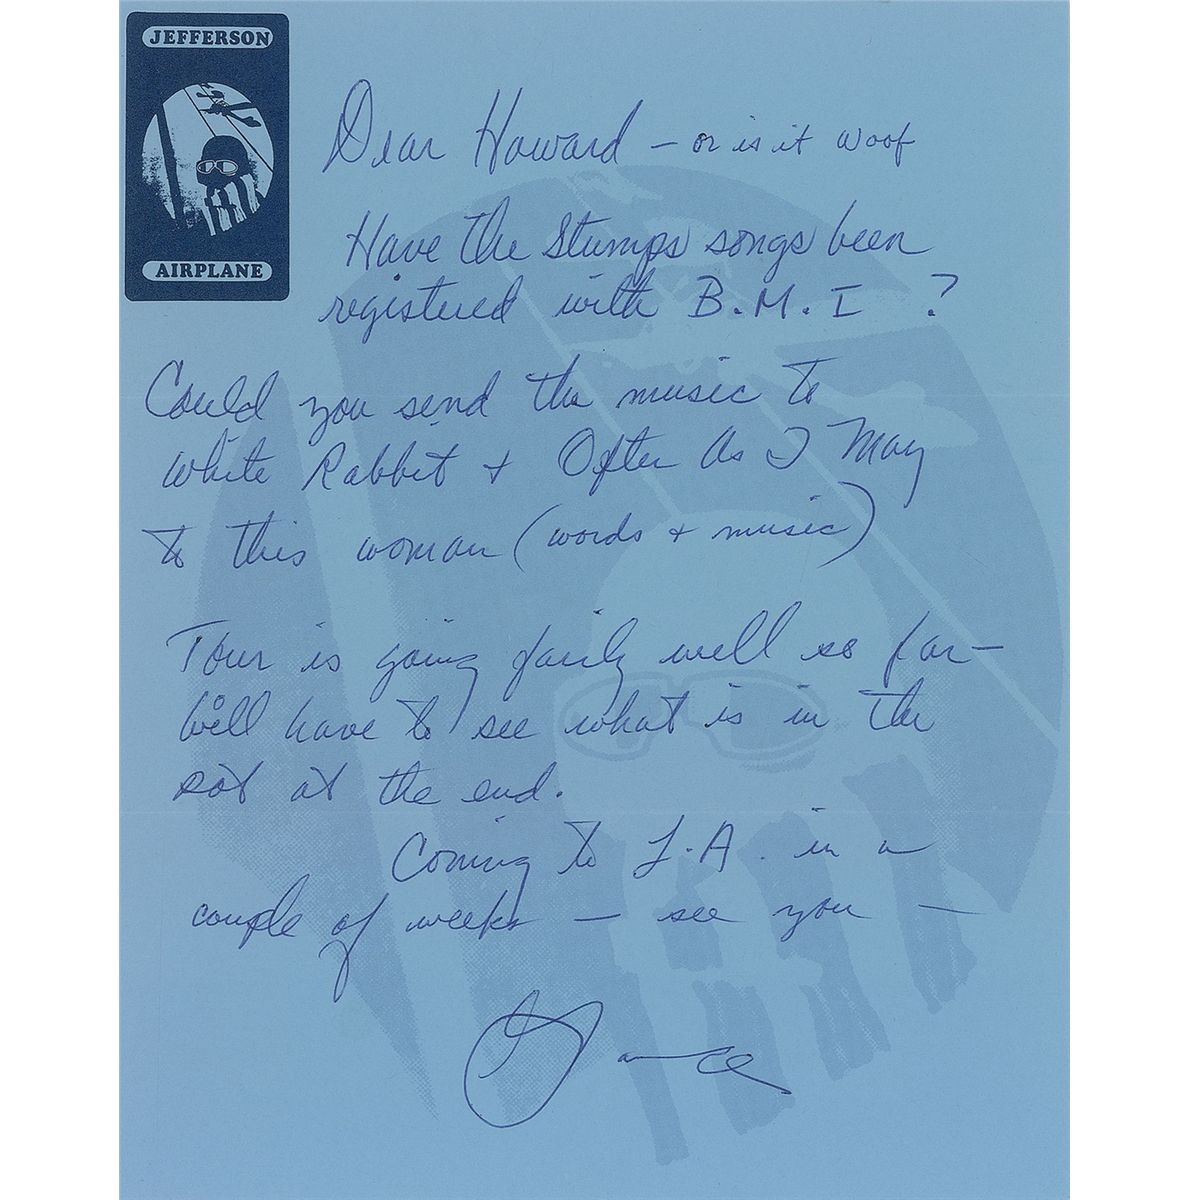 JEFFERSON
AIRPLANE
Dear Howard – or is it woof
Have the Stumps songs been
registered with B.M.I ?
Could you send the music to
White Rabbit + Often As I May
to this woman (words + music)
Tour is going fairly well so far –
Will have to see what is in the
at the end.
Coming to L.A. in a
couple of weeks – see you –
Grace